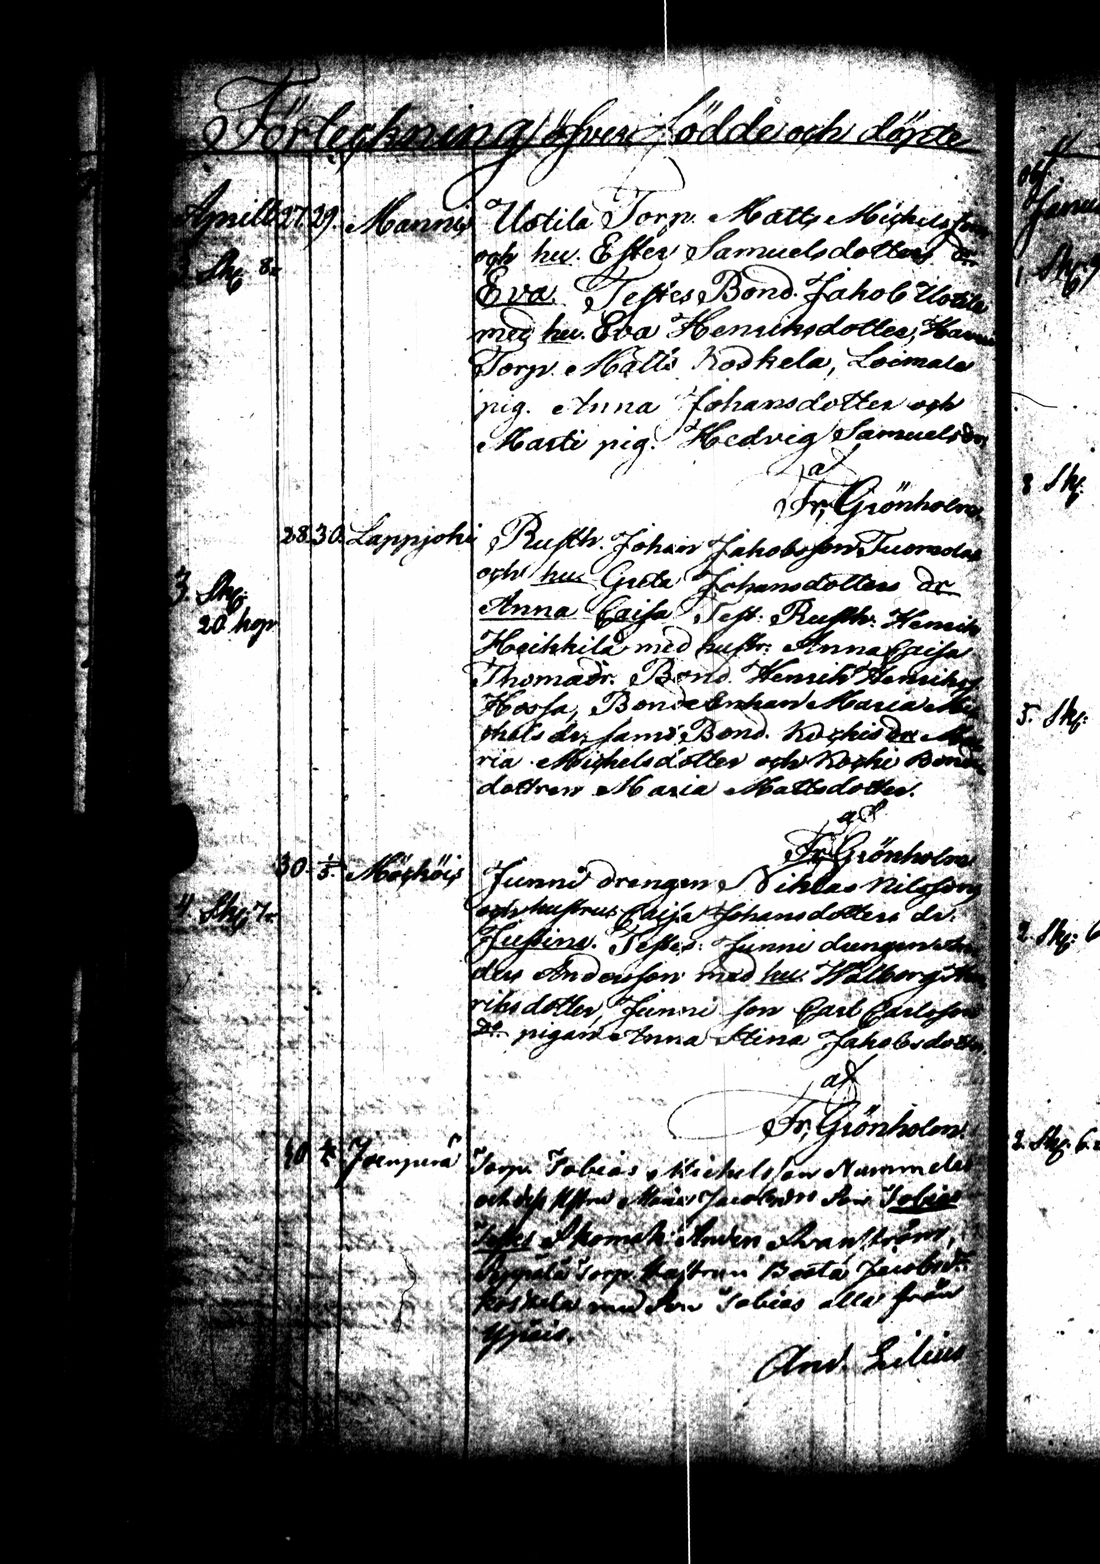 Förteckning öfver Födde och döpte
Aprill 27. 29. Mannis Uotila Torp. Matts Michelsson
och hu. Ester Samuelsdotters dr
Skp. 8.
Eva. Testes Bond. Jakob Uotila
med hu. Eva Henriksdotter,
Torp. Matts Koskela, Loimala
pig. Anna Johansdotter och
Marti pig. Hedvig Samuelsdr
af
Fr, Grönholm
28. 30. Lappjoki Rusth. Johan Jakobsson Tuomola
och hu. Greta Johansdotters dr
3. Skp.
20 kop
Anna Caisa Test. Rusth. Henrik
Heikkilä med hustr. Anna Caisa
Thomadr. Bond. Henrik Henriks
Hossa, Bonde Enkan Maria Mi
chelsdr. samt Bond. Kockis dr Ma
ria Michelsdotter och Kocki Bonde
dottren Maria Mattsdotter.
af
Fr, Grönholm
30. 1/5. Junni drengen Niklas Nilssons
och hustrus Caisa Johansdotters dr.
4. Skp. 7.
Justina. Testes: Junni drengen An
ders Andersson med hu. Walborg Hen
riksdotter, Junni son Carl Carlsson
Do pigan Anna Stina Jakobsdotter.
af
Fr, Grönholm.
30 Torp. Tobias Michelsson Nummela
och dess Hustru Maria Jacobsdrs Son Tobias
Testes
Torp. Hustrun Beata Jacobsdr
Koskela med Son Tobias alla från
And. Lilius